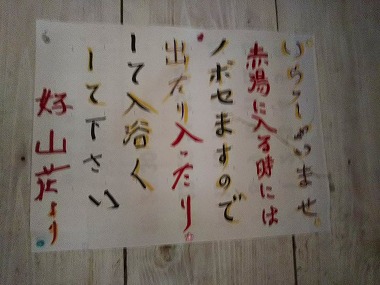 いらっしゃいませ。
赤湯に入る時には
ノボセますので
出たり入ったり
して入浴く
して下さい
好山荘より